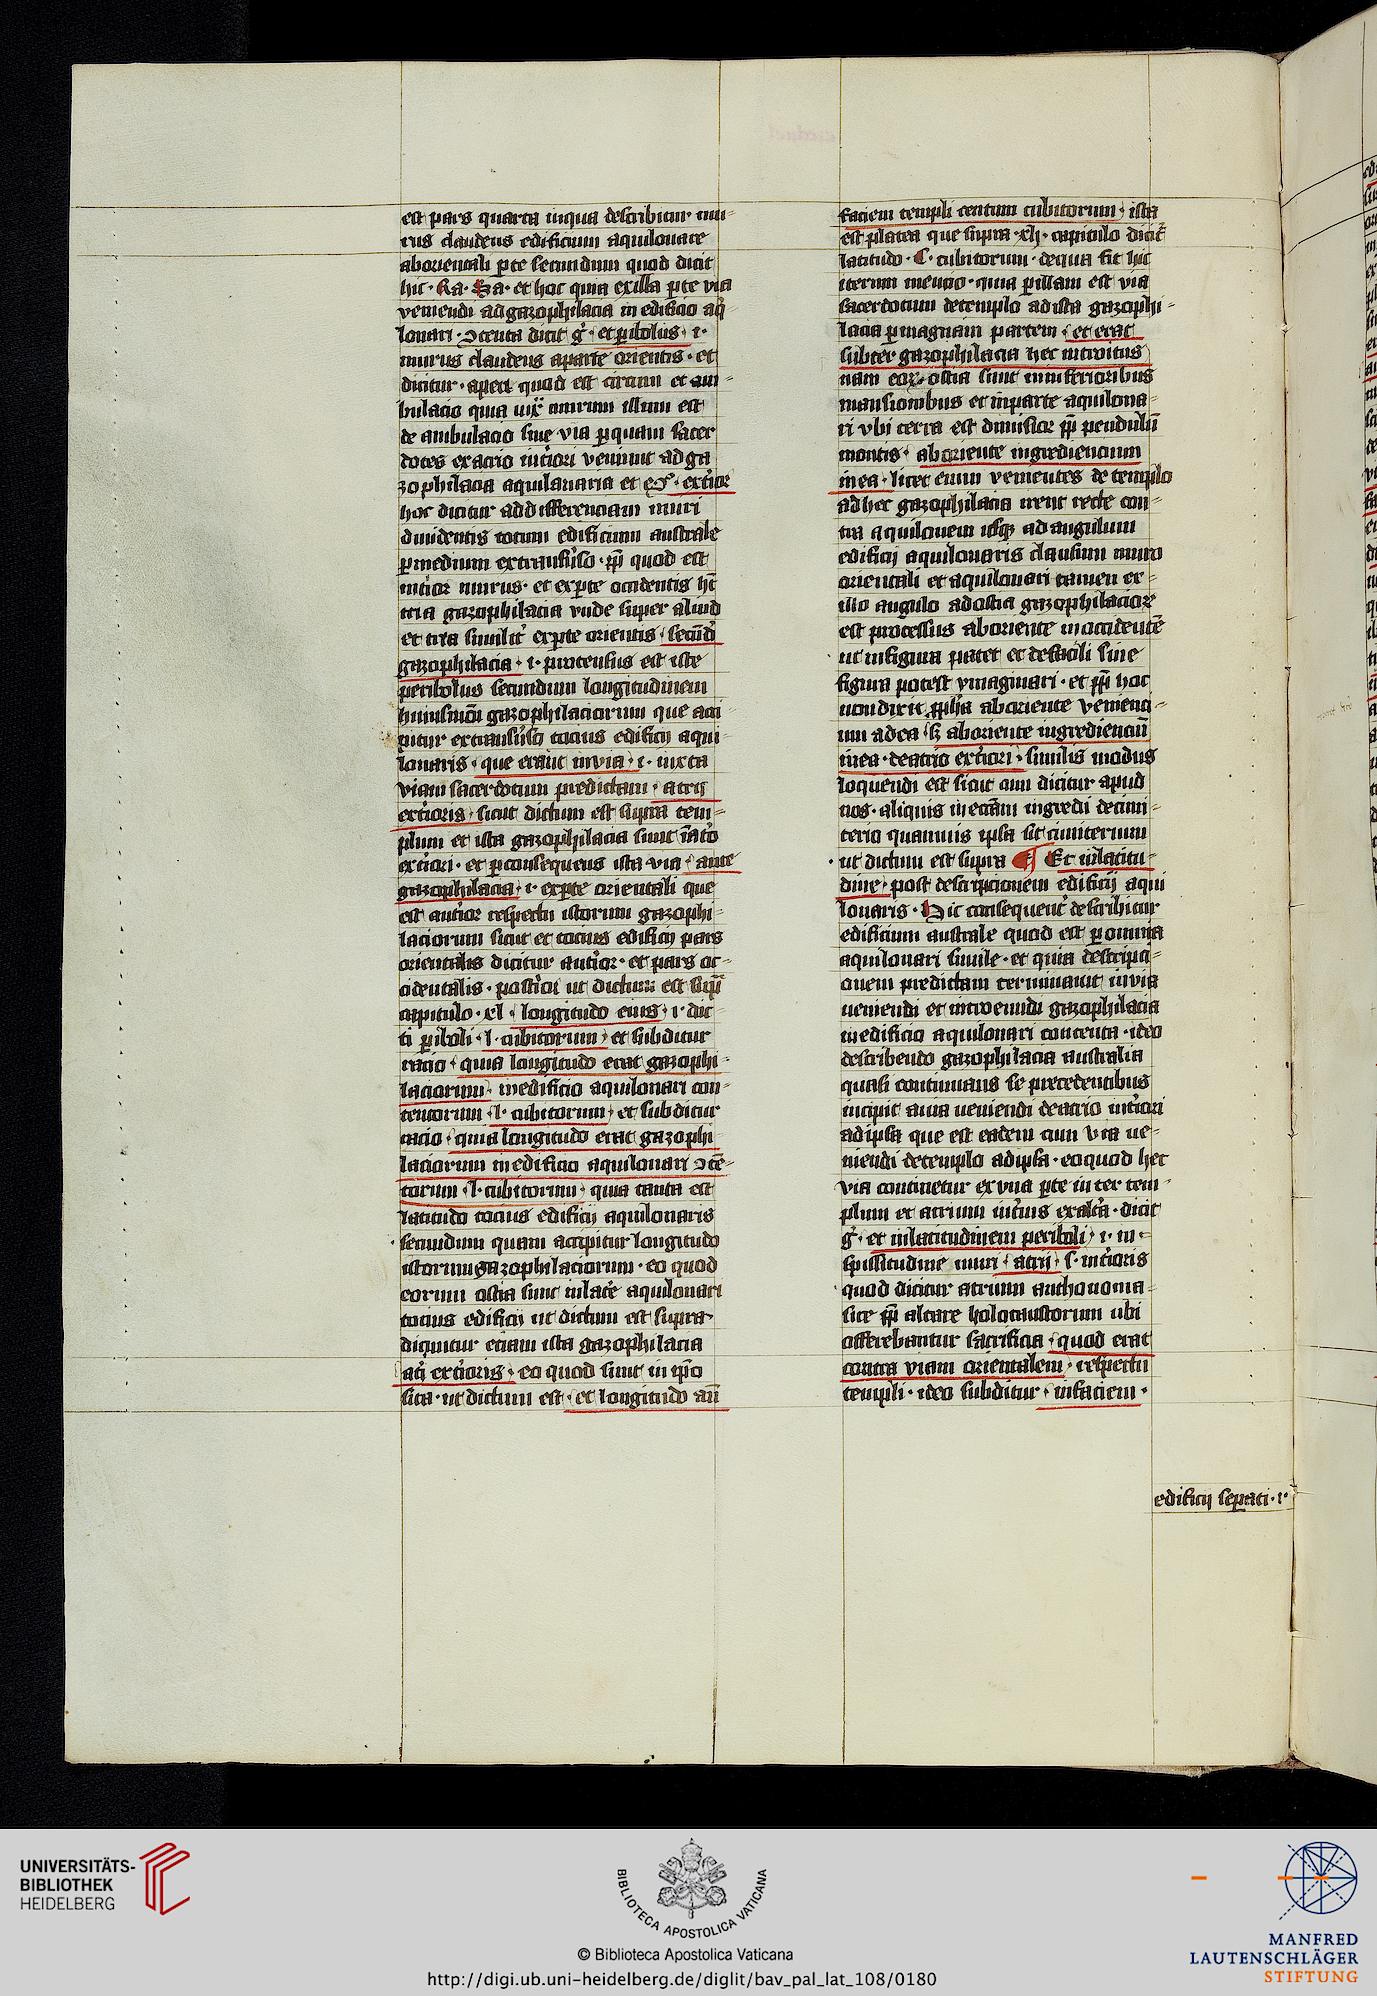 est pars quarta inqua describitur mu-
rus claudens edificium aquilonare
aborientali pte secundum quod dicit
hic · Ra · Sa · et hoc quia exilla pte via
veniendi ad gazophilacia in edificio aqi
lonari · ɔtenta dicit g° · et pibolus · i ·
murus claudens aparte orientis · et
dicitur · aperi quod est circum et am-
bulacio quia iuxta murum illum est
de ambulacio siue via pquam sacer
dotes exatrio intiori veniunt ad ga
zophilacia aquilanaria et · extior
hoc dicitur ad differenciam muri
diuidentis totum edificium australe
pmedium extransuerso · pp quod est
intior murus · et expte occidentis ht
tria gazophilacia vnde super aliud
et tria similit expte orientis · secundu
gazophilacia · i · protensus est iste
peribolus secundum longitudinem
huiusmodi gazophilaciorum que acci-
pitur extransuso tocius edificij aqui-
lonaris · que erant invia · i · iuxta
viam sacerdotum predictam · atrij
extioris · sicut dictum est supra tem-
plum et ista gazophilacia sunt in atrio
extiori · et pconsequens ista via · ante
gazophilacia · i · expte orientali que
est antior respectu istorum gazophi-
laciorum sicut et tocius edificij pars
orientalis dicitur antior · et pars oc-
cidentalis · postior ut dictum est supra
capitulo · xl · longitudo eius · i · dic-
ti piboli · l · cubitorum · et subditur
racio · quia longitudo erat gazophi-
laciorum · inedificio aquilonari con-
tentorum · l · cubitorum · et subditur
racio · quia longitudo erat gazophi-
laciorum inedificio aquilonari ɔte-
torum · l · cubitorum · quia tanta est
latitudo tocius edificij aquilonaris
secundum quam accipitur longitudo
istorum gazophilaciorum · eo quod
eorum ostia sunt inlate aquilonari
tocius edificij ut dictum est supra ·
dicuntur etiam ista gazophilacia
atij extioris · eo quod sunt in ipo
sita · ut dictum est · et longitudo an
faciem templi centum cubitorum · ista
est platea que supra · xlj · capitulo dicit
latitudo · C · cubitorum · dequa fit hic
iterum mencio · quia pillam est via
sacerdotum detemplo ad ista gazophi-
lacia pmagnam partem · et erat
subter gazophilacia hec introitus
nam eorum ostia sunt in inferioribus
mansionibus et inparte aquilona-
ri vbi terra est dimissior pp pendulum
montis · aboriente ingrediencium
inea · licet enim venientes de templo
ad hec gazophilacia irent recte con-
tra aquilonem usque ad angulum
edificij aquilonaris clausum muro
orientali et aquilonari tamen ex-
illo angulo ad ostia gazophilaciorum
est processus aboriente in occidente
ut infigura patet et defacili sine
figura potest ymaginari · et pp hoc
non dixit ppha aboriente venienci-
um ad ea · s aboriente ingredienciu
inea · deatrio extiori · similis modus
loquendi est sicut cum dicitur apud
nos · aliquis in eccam ingredi decimi-
terio quamuis ipsa sit cimiterium
ut dictum est supra ¶ Et inlatitu-
dine · post descripcionem edificij aqui
lonaris · Hic consequent describitur
edificium australe quod est pomnia
aquilonari simile · et quia descripci-
onem predictam terminauit invia
ueniendi et introeundi gazophilacia
inedificio aquilonari contenta · ideo
describendo gazophilacia australia
quasi continuans se precedentibus
incipit auia ueniendi deatrio intiori
adipsa que est eadem cum via ue-
niendi detemplo adipsa · eoquod hec
via continetur ex vna pte in ter tem-
plum et atrium intius exalta · dicit
g° · et inlatitudinem periboli · i · in-
spissitudine muri · atrij · s · intioris
quod dicitur atrium anthonoma-
sice pp altare holocaustorum ubi
offerebantur sacrificia · quod erat
contra viam orientalem · respectu
templi · ideo subditur · infaciem ·
edificij sepati · i ·
UNIVERSITÄTS-
BIBLIOTHEK
HEIDELBERG
BIBLIOTECA APOSTOLICA VATICANA
© Biblioteca Apostolica Vaticana
http://digi.ub.uni-heidelberg.de/diglit/bav_pal_lat_108/0180
MANFRED
LAUTENSCHLÄGER
STIFTUNG